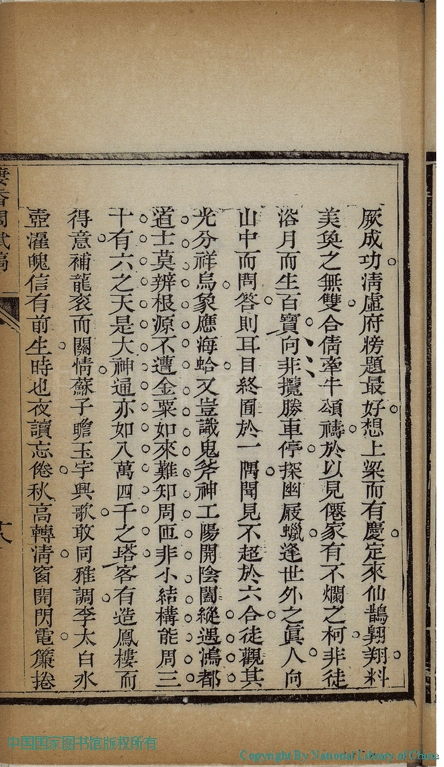 厥成功清虛府榜題最好想上梁而有慶定來仙鵲翔翔料
美奐之無雙合倩牽牛頌禱於以見僊家有不爛之柯非徒
浴月而生百寶向非攬勝車停探幽屐蠟逢世外之眞人向
山中而問答則耳目終囿於一隅聞見不超於六合徒觀其
光分祥烏象應海蛤又豈識鬼斧神工陽開陰闔縱遇鴻都
道士莫辨根源不遭金粟如來難知周匝非小結構能周三
十有六之天是大神通亦如八萬四千之塔客有造鳳樓而
得意補龍袞而關情蘇子瞻玉宇興歌敢同雅調李太白水
壺濯魄信有前生時也夜讀忘倦秋高轉清窗開閃電簾捲
香閣賦稿
中国国家图书馆版权所有
Copyright By National Library of China